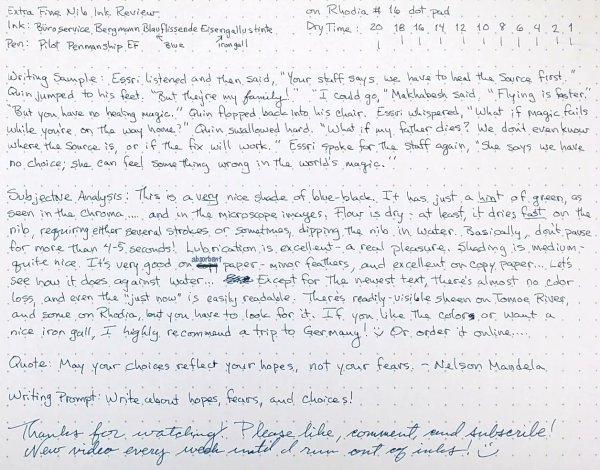 Extra Fine Nib Ink Review on Rhodia #16 dot pad
Ink: Büroservice Bergmann Blauflissende Eisengallustinte Dry Time: 20 18 16 14 12 10 8 6 4 2 1
Pen: Pilot Penmanship EF Blue irongall
Writing Sample: Essri listened and then said, "Your staff says, we have to heal the Source first."
Quin jumped to his feet. "But they're my family!" "I could go," Makhabesh said. "Flying is faster."
"But you have no healing magic." Quin flopped back into his chair. Essri whispered, "What if magic fails
while you're on the way home?" Quin swallowed hard. "What if my father dies? We don't even know
where the Source is, or if the fix will work." Essri spoke for the staff again, "She says we have
no choice; she can feel something wrong in the world's magic."
Subjective Analysis: This is a very nice shade of blue-black. It has just a hint of green, as
seen in the chroma..... and in the microscope images. Flow is dry - at least, it dries fast on the
nib, requiring either several strokes or sometimes, dipping the nib in water. Basically, don't pause
for more than 4-5 seconds! Lubrication is excellent - a real pleasure. Shading is medium-
quite nice. It's very good on absorbent paper - minor feathers, and excellent on copy paper.... Let's
see how it does against water... Except for the newest text, there's almost no color
loss, and even the "just now" is easily readable. There's readily-visible sheen on Tomoe River,
and some on Rhodia, but you have to look for it. If you like the colors or want a
nice iron gall, I highly recommend a trip to Germany! Or order it online....
Quote: May your choices reflect your hopes, not your fears. - Nelson Mandela
Writing Prompt: Write about hopes, fears, and choices!
Thanks for watching! Please like, comment, and subscribe!
New video every week until I run out of inks!